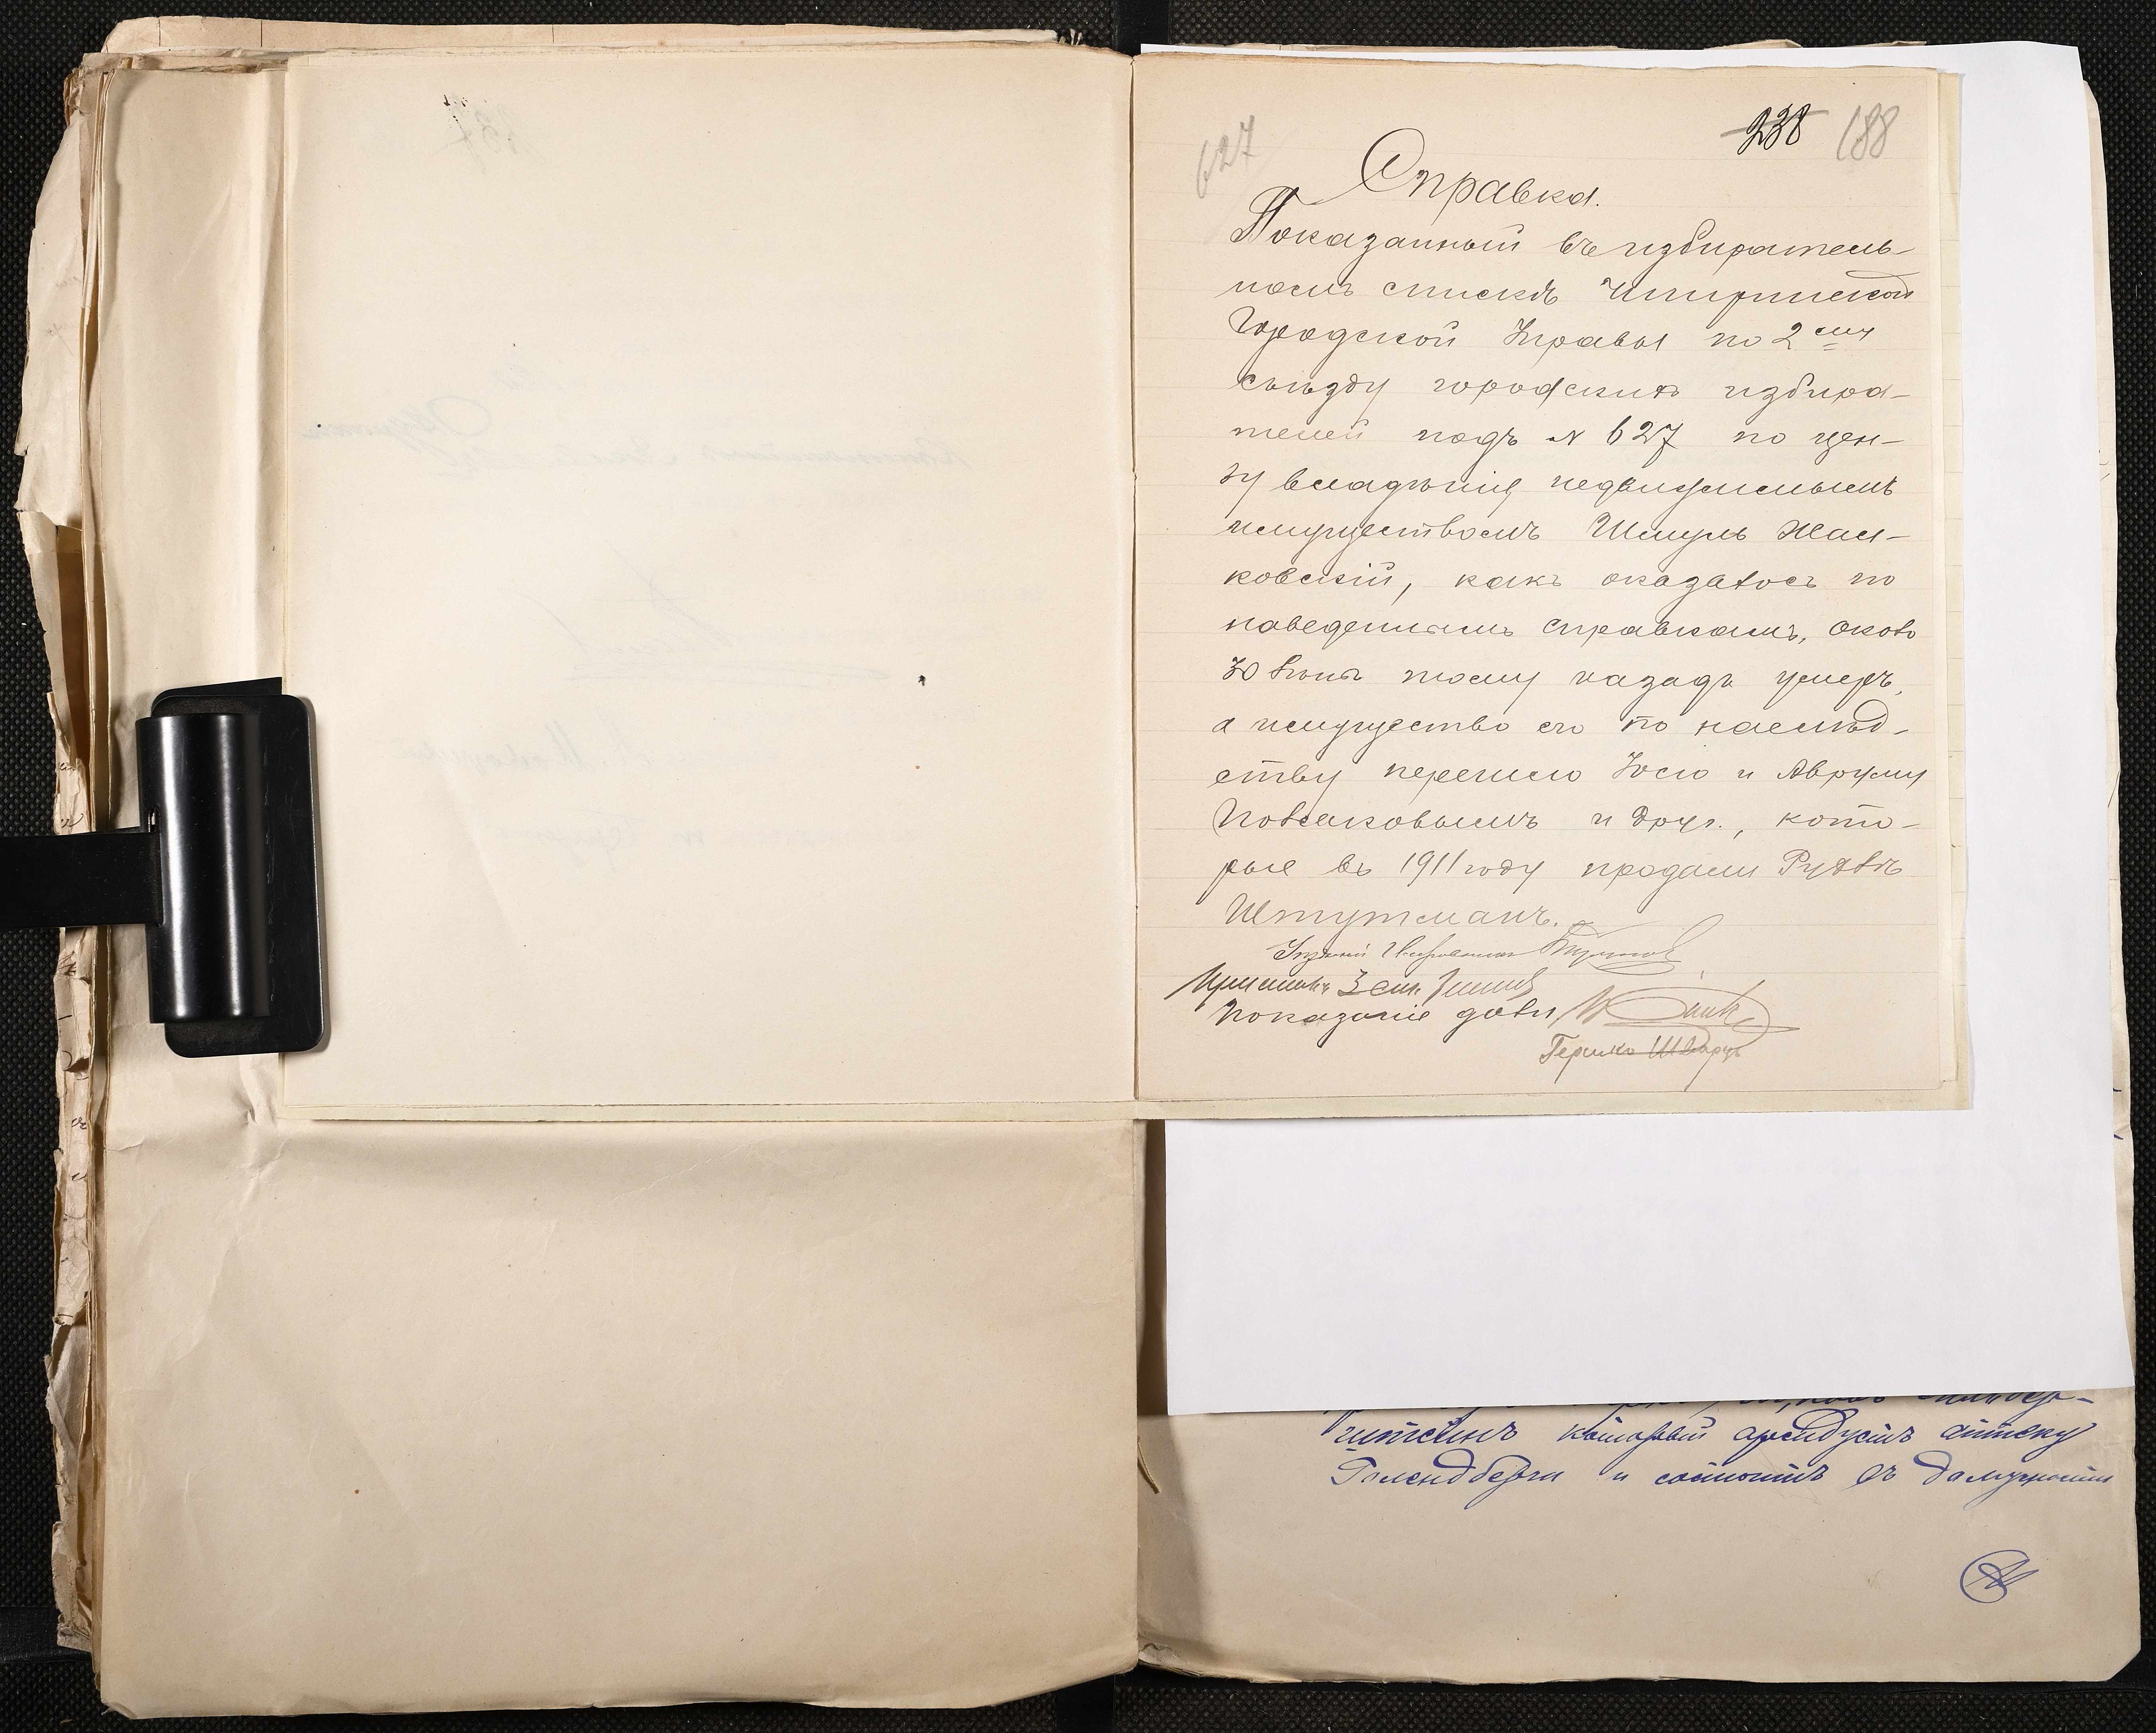 627
238 188
Справка.
Показанный въ избиратель-
номъ спискѣ Чигиринской
Городской Управы по 2му
съѣзду городскихъ избира-
телей подъ № 627 по цен-
зу владѣнія недвижимымъ
имуществомъ Шмуль
ковскій, какъ оказалось по
наведеннымъ справкамъ, около
30 лѣтъ тому назадъ умеръ,
а имущество его по наслѣд-
ству перешло Іосю и Авруму
и друг., кото-
рые въ 1911 году продали
Штутманъ.
Показаніе дали
Гершко Шварцъ
который арендуетъ аптеку
и состоитъ въ